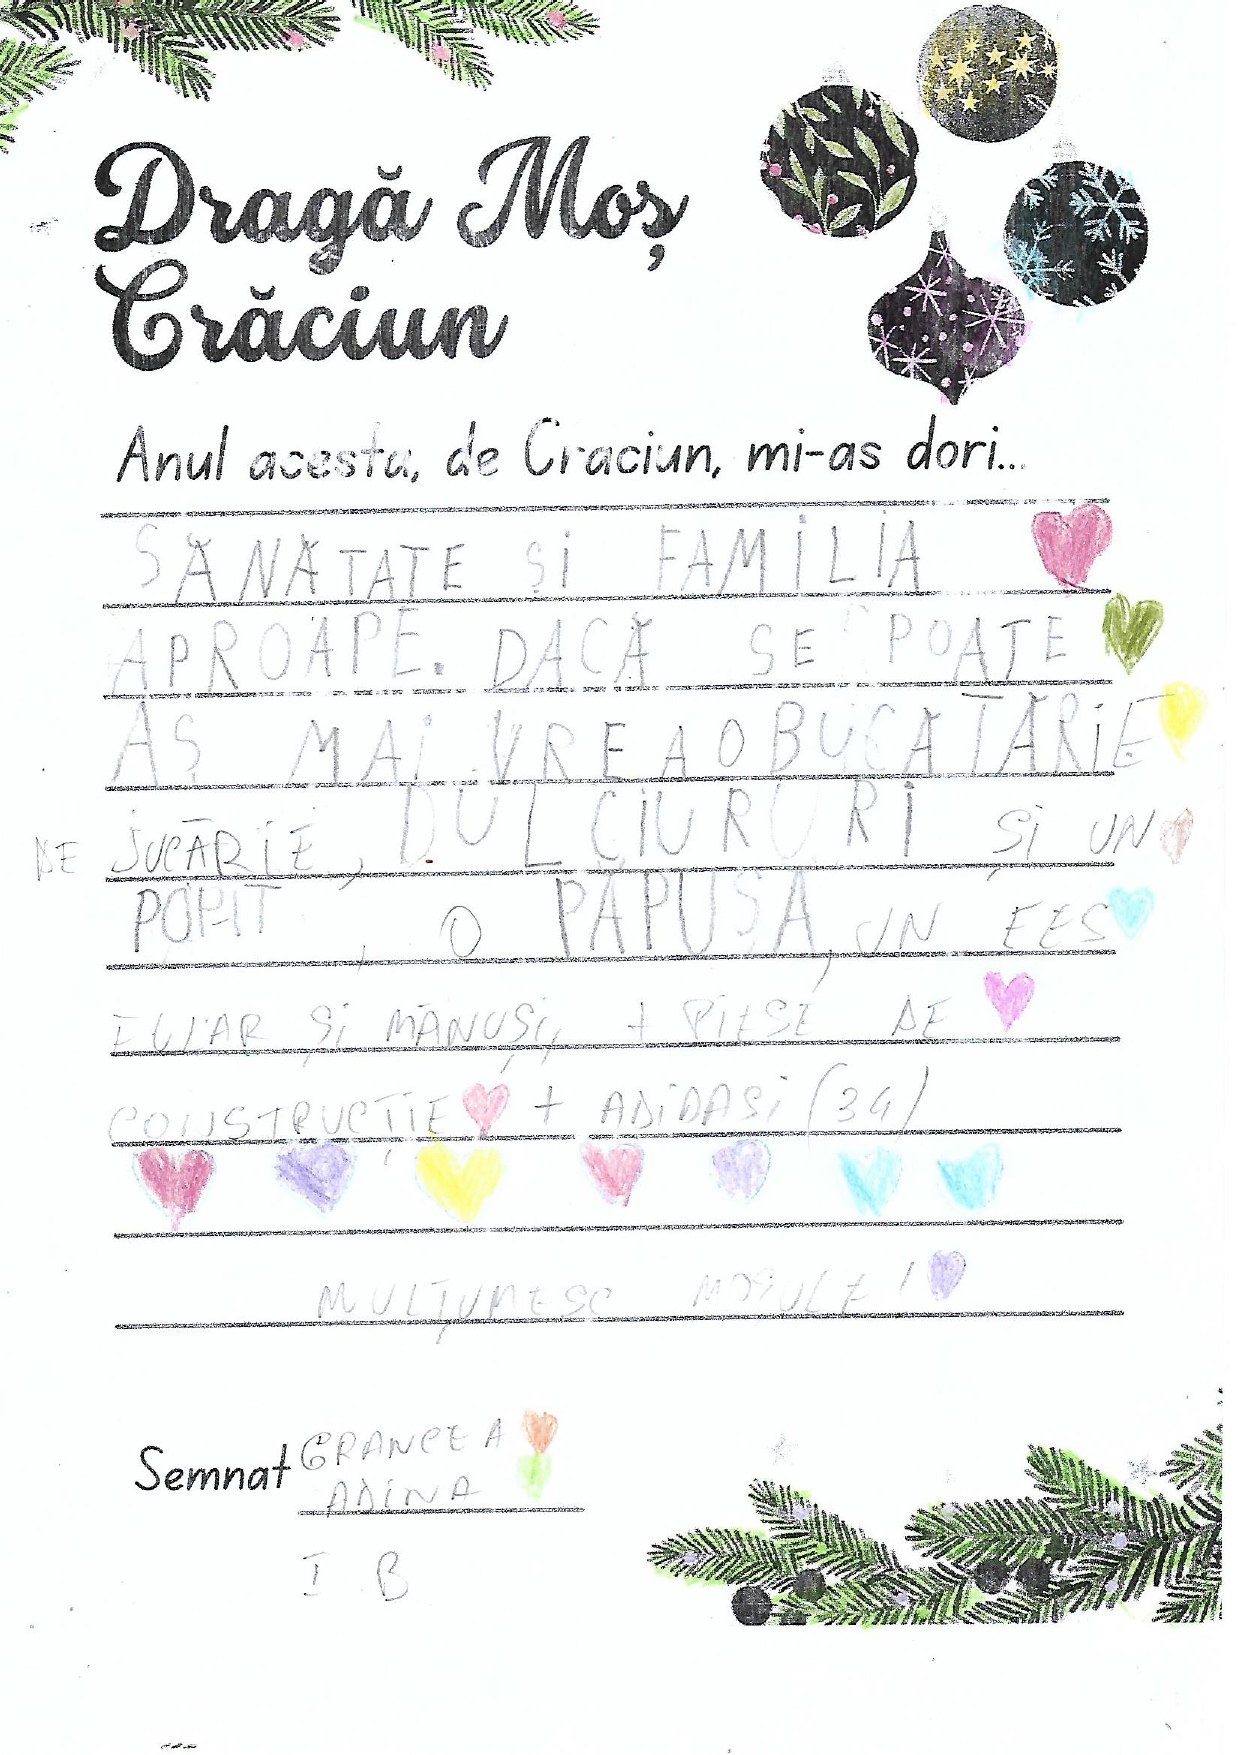 Dragă Moș
Crăciun
Anul acesta, de Craciun, mi-as dori...
SĂNĂTATE ȘI FAMILIA
APROAPE. DACĂ SE POATE
AȘ MAI VREA O BUCĂTĂRIE
DE JUCĂRIE, DULCIURURI ȘI UN
POPIT, O PĂPUȘĂ, UN FES
ȘI MĂNUȘI, + PIESE DE
CONSTRUCȚIE + ADIDAȘI (34)
MULȚUMESC MOȘULE!
Semnat GRANCEA
ADINA
I B